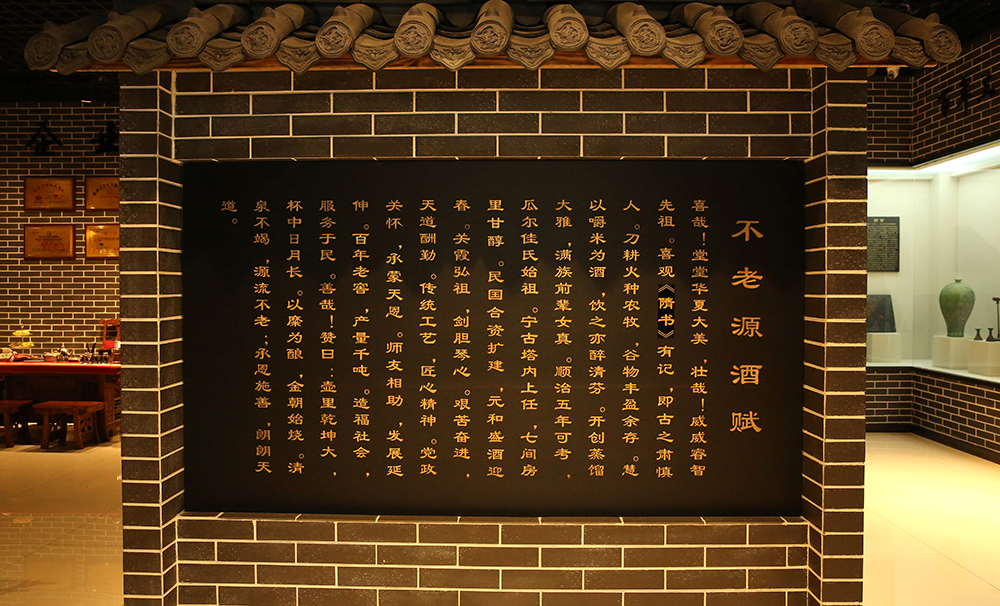 不老源酒赋
喜哉！堂堂华夏大美，壮哉！威威睿智
先祖。喜观《隋书》有记，即古之肃慎
人。刀耕火种农牧，谷物丰盈余存。慧
以嚼米为酒，饮之亦醉清芬。开创蒸馏
大雅，满族前辈女真。顺治五年可考，
瓜尔佳氏始祖。宁古塔内上任，七间房
里甘醇。民国合资扩建，元和盛酒迎
春。关霞弘祖，剑胆琴心。艰苦奋进，
天道酬勤。传统工艺，匠心精神。党政
关怀，承蒙天恩。师友相助，发展延
伸。百年老窖，产量千吨。造福社会，
服务于民。善哉！赞曰：壶里乾坤大，
杯中日月长。以糜为酿，金朝始烧。清
泉不竭，源流不老；承恩施善，朗朗天
道。